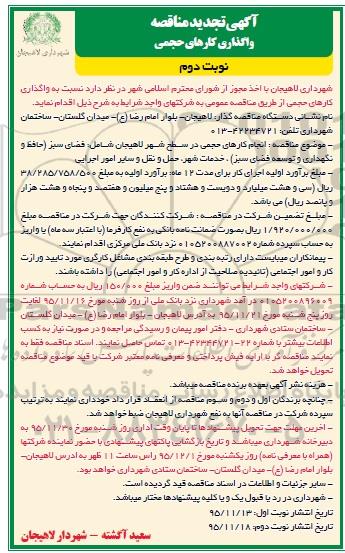 آگهی تجدید مناقصه
واگذاری کارهای حجمی
شهرداری لاهیجان
نوبت دوم
شهرداری لاهیجان با اخذ مجوز از شورای محترم اسلامی شهر در نظر دارد نسبت به واگذاری
کارهای حجمی از طریق مناقصه عمومی به شرکتهای واجد شرایط به شرح ذیل اقدام نماید.
نام نشانی دستگاه مناقصه گذار: لاهیجان- بلوار امام رضا (ع)- میدان گلستان- ساختمان
شهرداری تلفن: ۴۲۲۳۴۷۲۱-۰۱۳
- موضوع مناقصه: انجام کارهای حجمی در سطح شهر لاهیجان شامل: فضای سبز (حافظ و
نگهداری و توسعه فضای سبز) . خدمات شهر، حمل و نقل و سایر امور اجرایی
- مبلغ برآورد اولیه اجرای کار برای مدت ۱۲ ماه: برآورد اولیه به مبلغ ۳۸/۲۸۵/۷۵۸/۵۰۰
ریال (سی و هشت میلیارد و دویست و هشتاد و پنج میلیون و هفتصد و پنجاه و هشت هزار
و پانصد ریال) می باشد.
- مبلغ تضمین شرکت در مناقصه: شرکت کنندگان جهت شرکت در مناقصه مبلغ
۱/۹۲۰/۰۰۰/۰۰۰ ریال بصورت ضمانت نامه بانکی به نفع کارفرما (با اعتبار سه ماه) یا واریز
به حساب سپرده شماره ۰۱۰۵۲۰۰۸۸۷۰۰۲ نزد بانک ملی مرکزی اقدام نمایند.
- پیمانکاران میبایست دارای رتبه بندی و طرح طبقه بندی مشاغل کارگری مورد تایید وزارت
کار و امور اجتماعی (تائیدیه صلاحیت از اداره کار و امور اجتماعی) را داشته باشند.
- شرکتهای واجد شرایط می توانند ضمن واریز مبلغ ۱۵۰/۰۰۰ ریال به حساب شماره
۰۱۰۵۲۰۰۸۹۶۰۰۹ در آمد شهرداری نزد بانک ملی از روز شنبه مورخ ۹۵/۱۱/۱۶ لغایت
روز پنج شنبه مورخ ۹۵/۱۱/۲۱ به آدرس لاهیجان - بلوار امام رضا (ع) - میدان گلستان
- ساختمان ستادی شهرداری - دفتر امور پیمان و رسیدگی مراجعه و در صورت نیاز به کسب
اطلاعات بیشتر با شماره ۲۲-۴۲۲۳۴۷۲۱-۰۱۳ تماس حاصل نمایند. اسناد مناقصه فقط به
نماینده مناقصه گر با ارایه فیش پرداختی و معرفی نامه معتبر شرکت با قید موضوع مناقصه
تحویل خواهد شد.
- هزینه نشر آگهی بعهده برنده مناقصه میباشد.
- چنانچه برندگان اول و دوم و سوم مناقصه از انعقاد قرار داد خودداری نمایند به ترتیب
سپرده شرکت در مناقصه آنها به نفع شهرداری لاهیجان ضبط خواهد شد.
- آخرین مهلت جهت تحویل پیشنهادها تا پایان وقت اداری روز شنبه مورخ ۹۵/۱۱/۳۰ به
دبیرخانه شهرداری میباشد و تاریخ بازگشایی پاکتهای پیشنهادی با حضور نماینده شرکتها
(همراه با معرفی نامه) روز یکشنبه مورخ ۹۵/۱۲/۱ راس ساعت ۱۱ ظهر به آدرس لاهیجان-
بلوار امام رضا (ع)- میدان گلستان- ساختمان ستادی شهرداری خواهد بود.
- سایر جزئیات و اطلاعات در اسناد مناقصه قید گردیده است.
- شهرداری در رد یا قبول یک و یا کلیه پیشنهادها مختار میباشد.
تاریخ انتشار نوبت اول: ۹۵/۱۱/۱۳
تاریخ انتشار نوبت دوم: ۹۵/۱۱/۱۸
سعید آگشته - شهردار لاهیجان